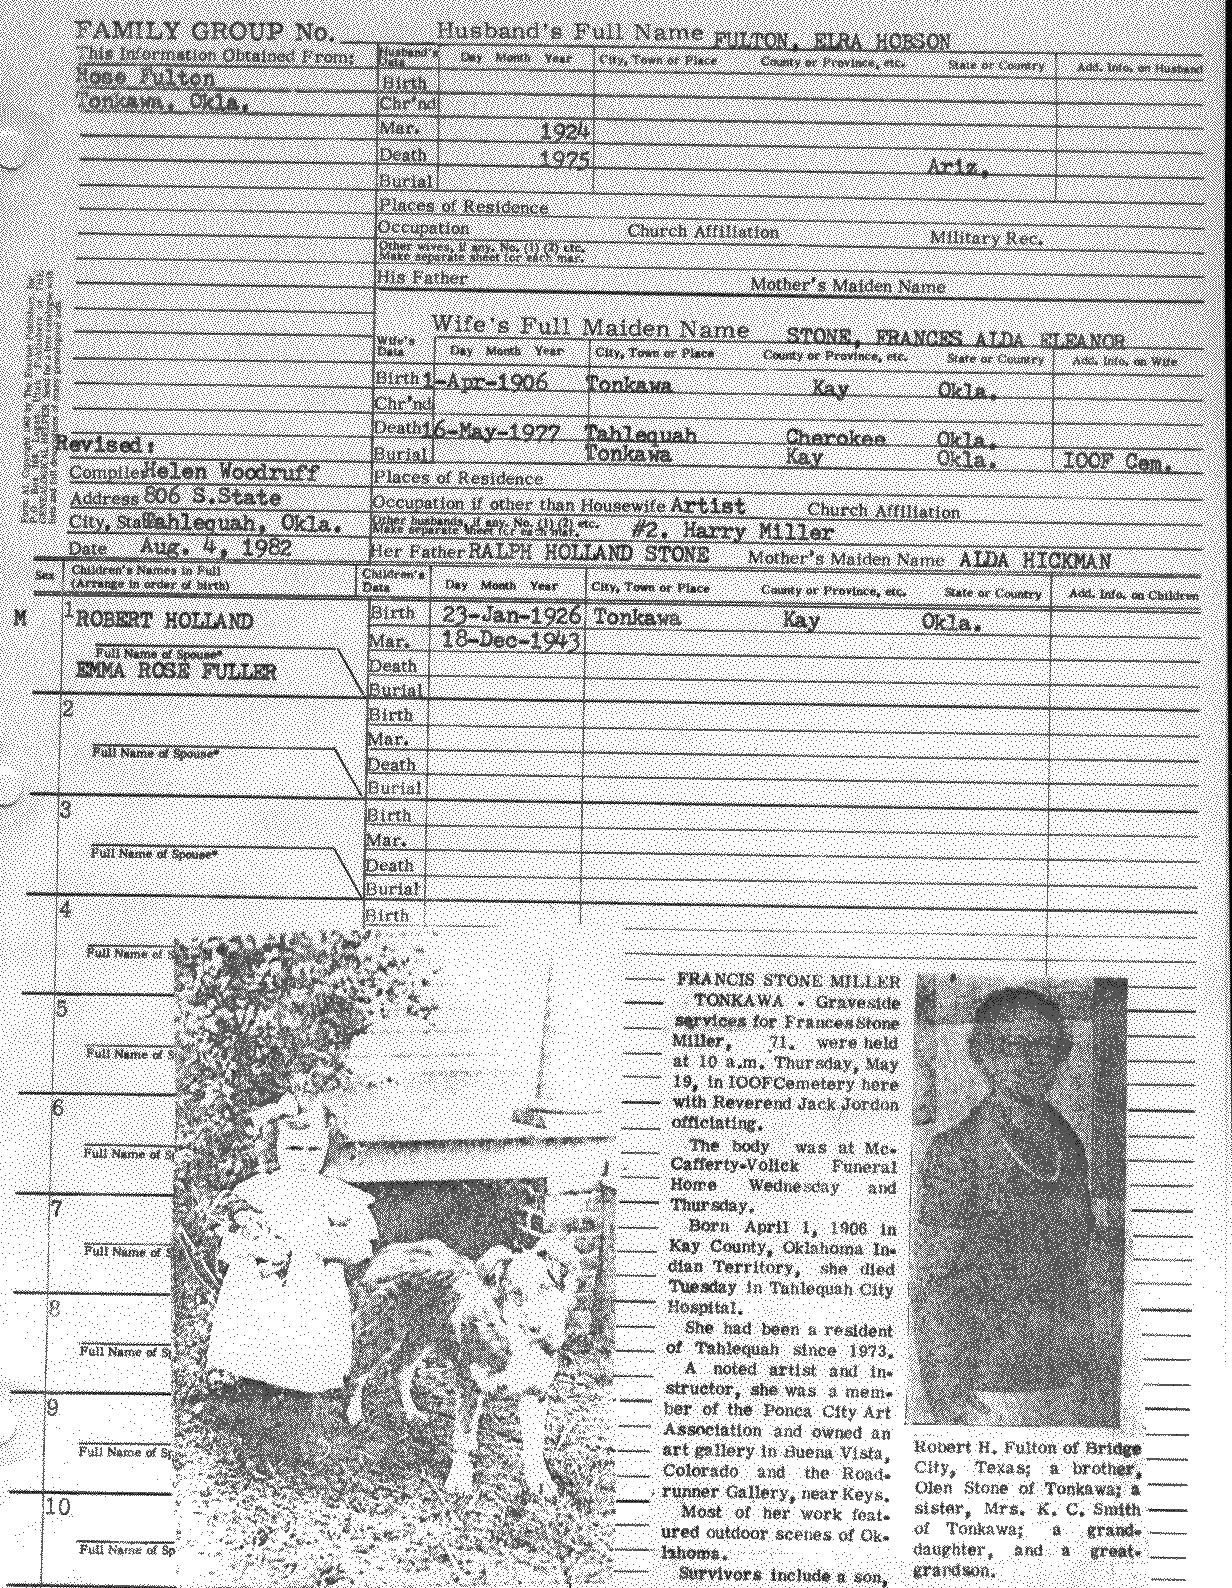 FAMILY GROUP No. Husband's Full Name FULTON, ELRA HOBSON
This Information Obtained From: Husband's Data Day Month Year City, Town or Place County or Province, etc. State or Country Add. Info. on Husband
Rose Fulton Birth
Tonkawa, Okla. Chr'nd
Mar. 1924
Death 1975 Ariz.
Burial
Places of Residence
Occupation Church Affiliation Military Rec.
Other wives, if any. No. (1) (2) etc.
Make separate sheet for each mar.
His Father Mother's Maiden Name
Wife's Full Maiden Name STONE, FRANCES ALDA ELEANOR
Wife's Data Day Month Year City, Town or Place County or Province, etc. State or Country Add. Info. on Wife
Birth 1-Apr-1906 Tonkawa Kay Okla.
Chr'nd
Death 16-May-1977 Tahlequah Cherokee Okla.
Revised:
Burial Tonkawa Kay Okla. IOOF Cem.
Compiler Helen Woodruff Places of Residence
Address 806 S.State Occupation if other than Housewife Artist Church Affiliation
City, State Tahlequah, Okla. Other husbands, if any. No. (1) (2) etc. Make separate sheet for each mar. #2. Harry Miller
Date Aug. 4, 1982 Her Father RALPH HOLLAND STONE Mother's Maiden Name ALDA HICKMAN
Sex Children's Names in Full (Arrange in order of birth) Children's Data Day Month Year City, Town or Place County or Province, etc. State or Country Add. Info. on Children
M 1 ROBERT HOLLAND Birth 23-Jan-1926 Tonkawa Kay Okla.
Mar. 18-Dec-1943
Full Name of Spouse*
EMMA ROSE FULLER Death
Burial
2 Birth
Mar.
Full Name of Spouse* Death
Burial
3 Birth
Mar.
Full Name of Spouse* Death
Burial
4 Birth
Full Name of S
5
Full Name of S
6
Full Name of S
7
Full Name of S
8
Full Name of S
9
Full Name of Sp
10
Full Name of Sp
FRANCIS STONE MILLER
TONKAWA - Graveside
services for Frances Stone
Miller, 71. were held
at 10 a.m. Thursday, May
19, in IOOF Cemetery here
with Reverend Jack Jordon
officiating.
The body was at Mc-
Cafferty-Volick Funeral
Home Wednesday and
Thursday.
Born April 1, 1906 in
Kay County, Oklahoma In-
dian Territory, she died
Tuesday in Tahlequah City
Hospital.
She had been a resident
of Tahlequah since 1973.
A noted artist and in-
structor, she was a mem-
ber of the Ponca City Art
Association and owned an
art gallery in Buena Vista,
Colorado and the Road-
runner Gallery, near Keys.
Most of her work feat-
ured outdoor scenes of Ok-
lahoma.
Survivors include a son,
Robert H. Fulton of Bridge
City, Texas; a brother,
Olen Stone of Tonkawa; a
sister, Mrs. K. C. Smith
of Tonkawa; a grand-
daughter, and a great-
grandson.